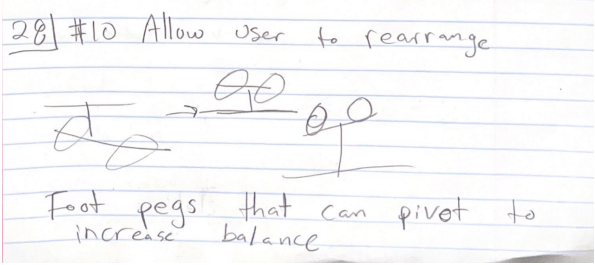 28| #10 Allow user to rearrange
Foot pegs that can pivot to
increase balance